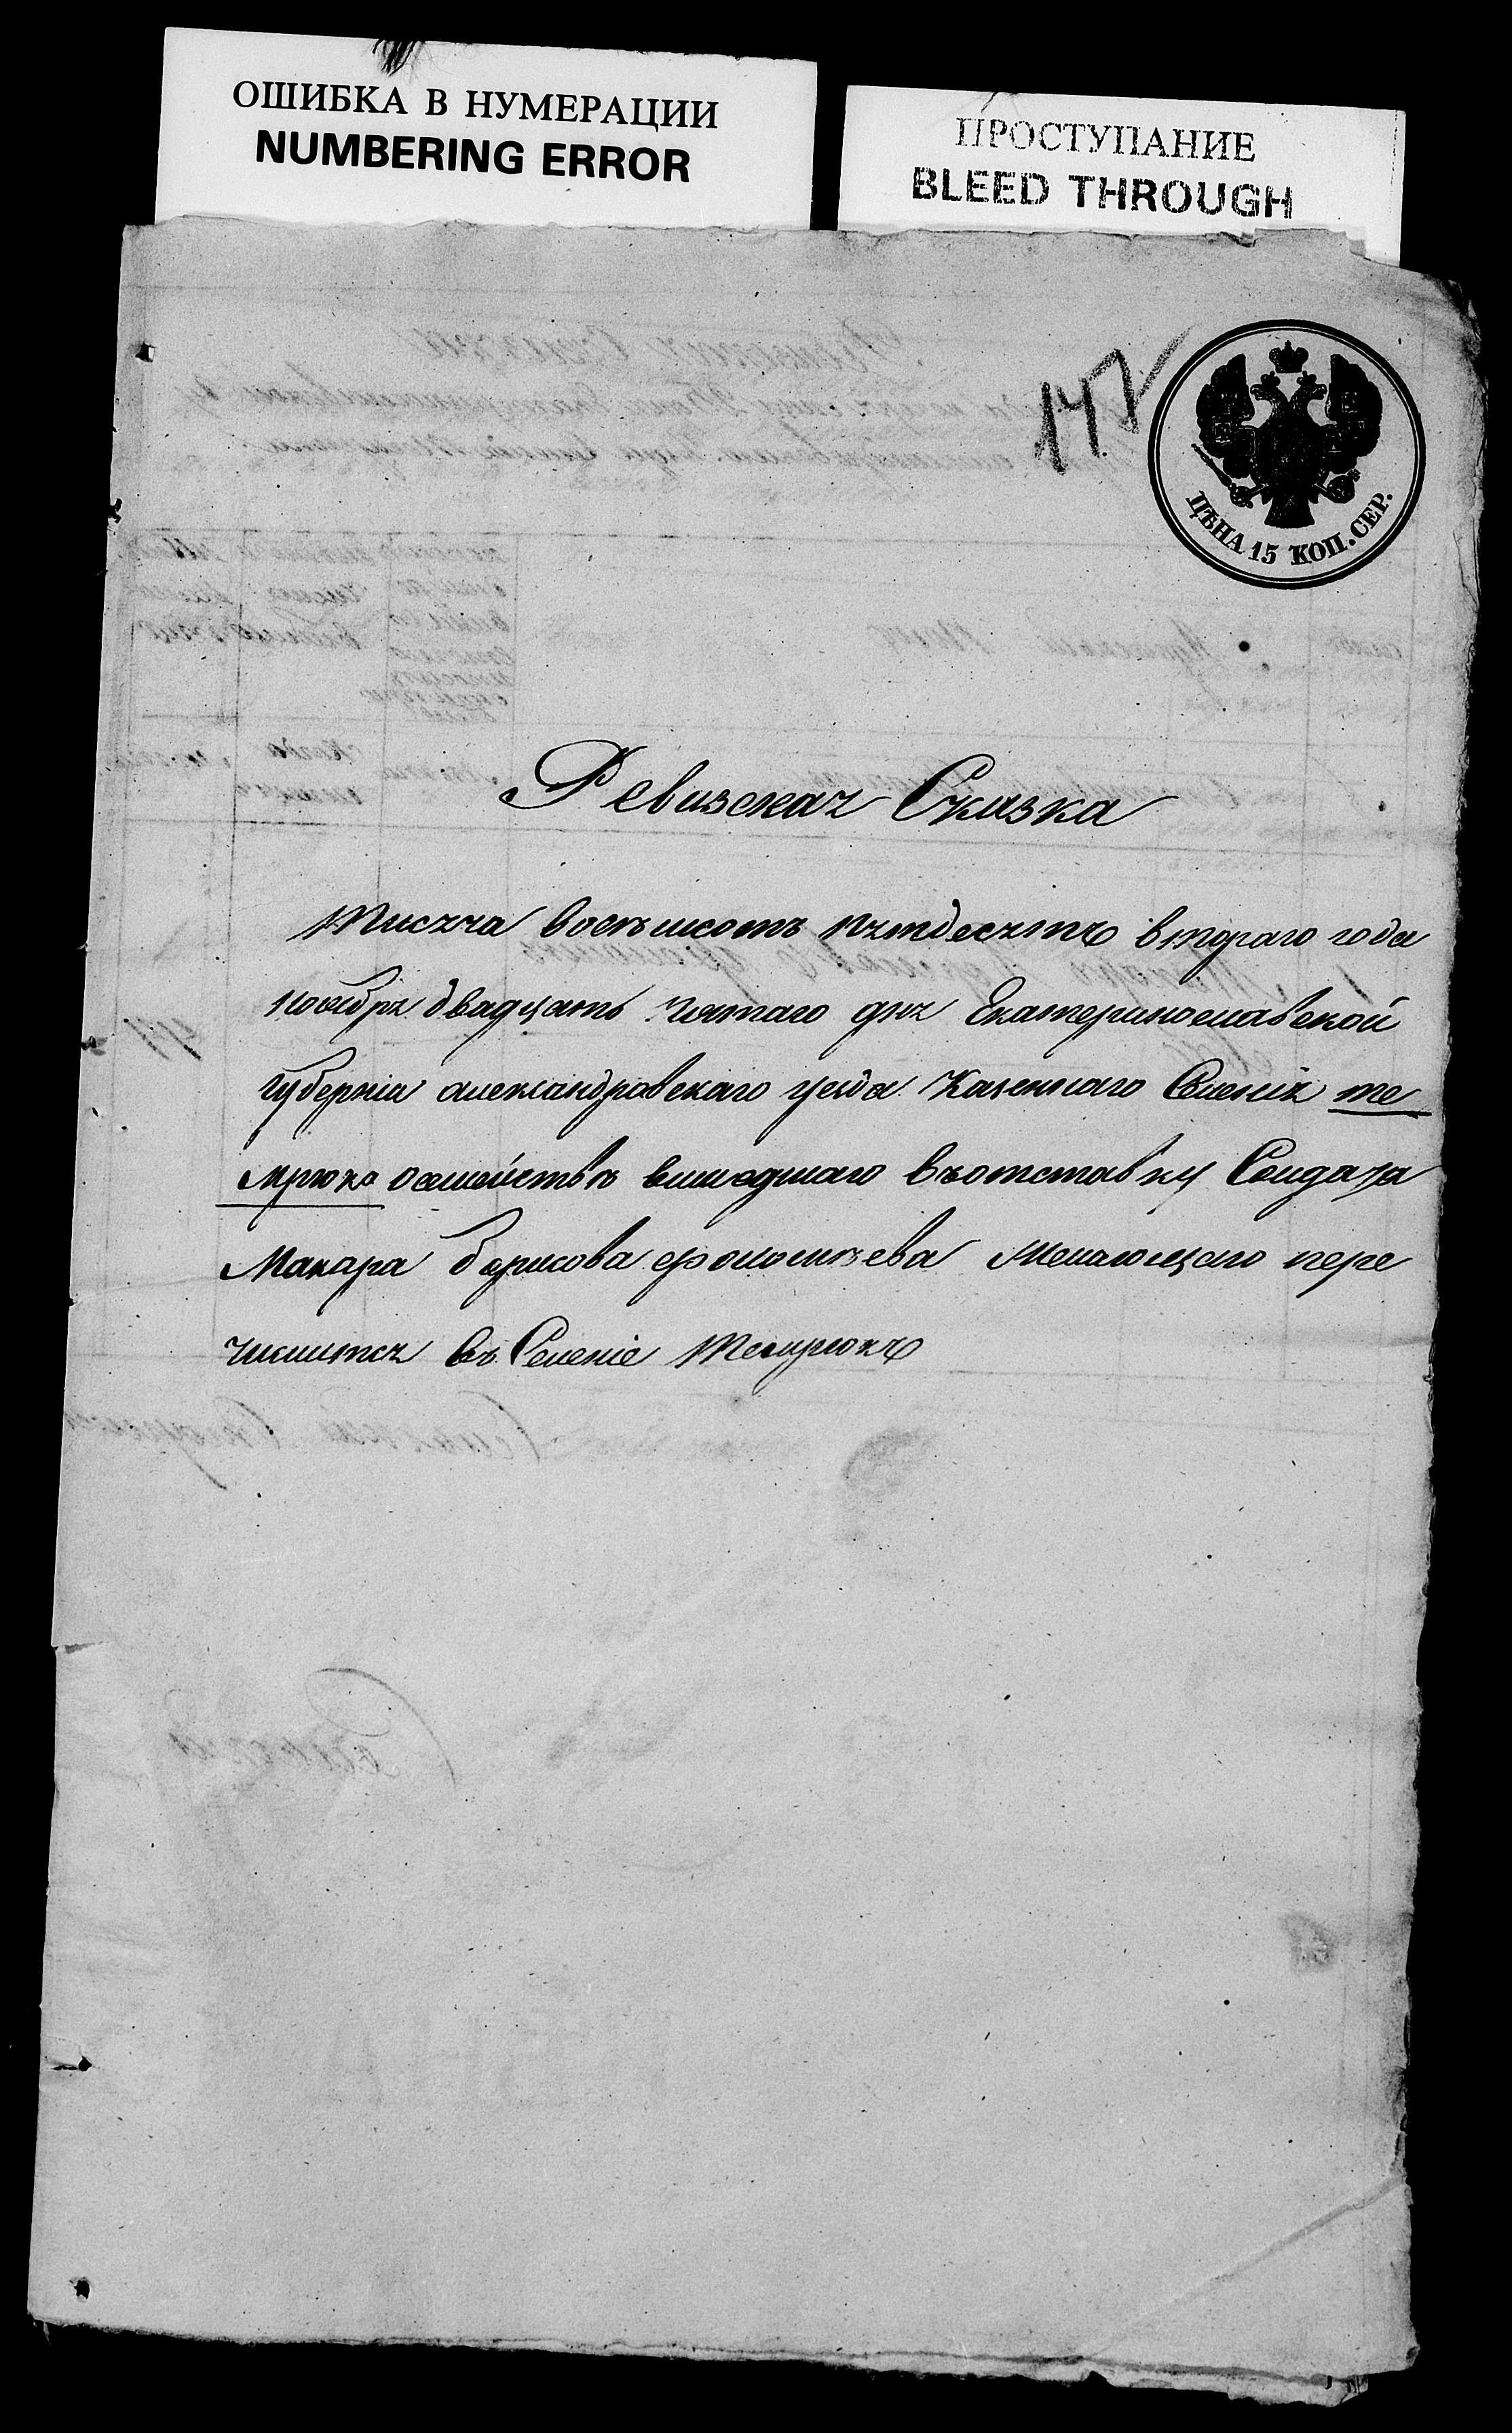 ОШИБКА В НУМЕРАЦИИ
NUMBERING ERROR
ПРОСТУПАНИЕ
BLEED THROUGH
147
ЦѢНА 15 КОП. СЕР.
Ревизская Сказка
Тисяча восѣмсотъ пятдесятъ втораго года
ноября двадцать пятаго дня Екатеринославской
Губерніи александровскаго уезда Казеннаго Селенія те
мрюка осемействѣ вишедшаго вьотставку Солдата
Макара борисова Желающаго пере
числиться въ Селеніе Темрюкъ